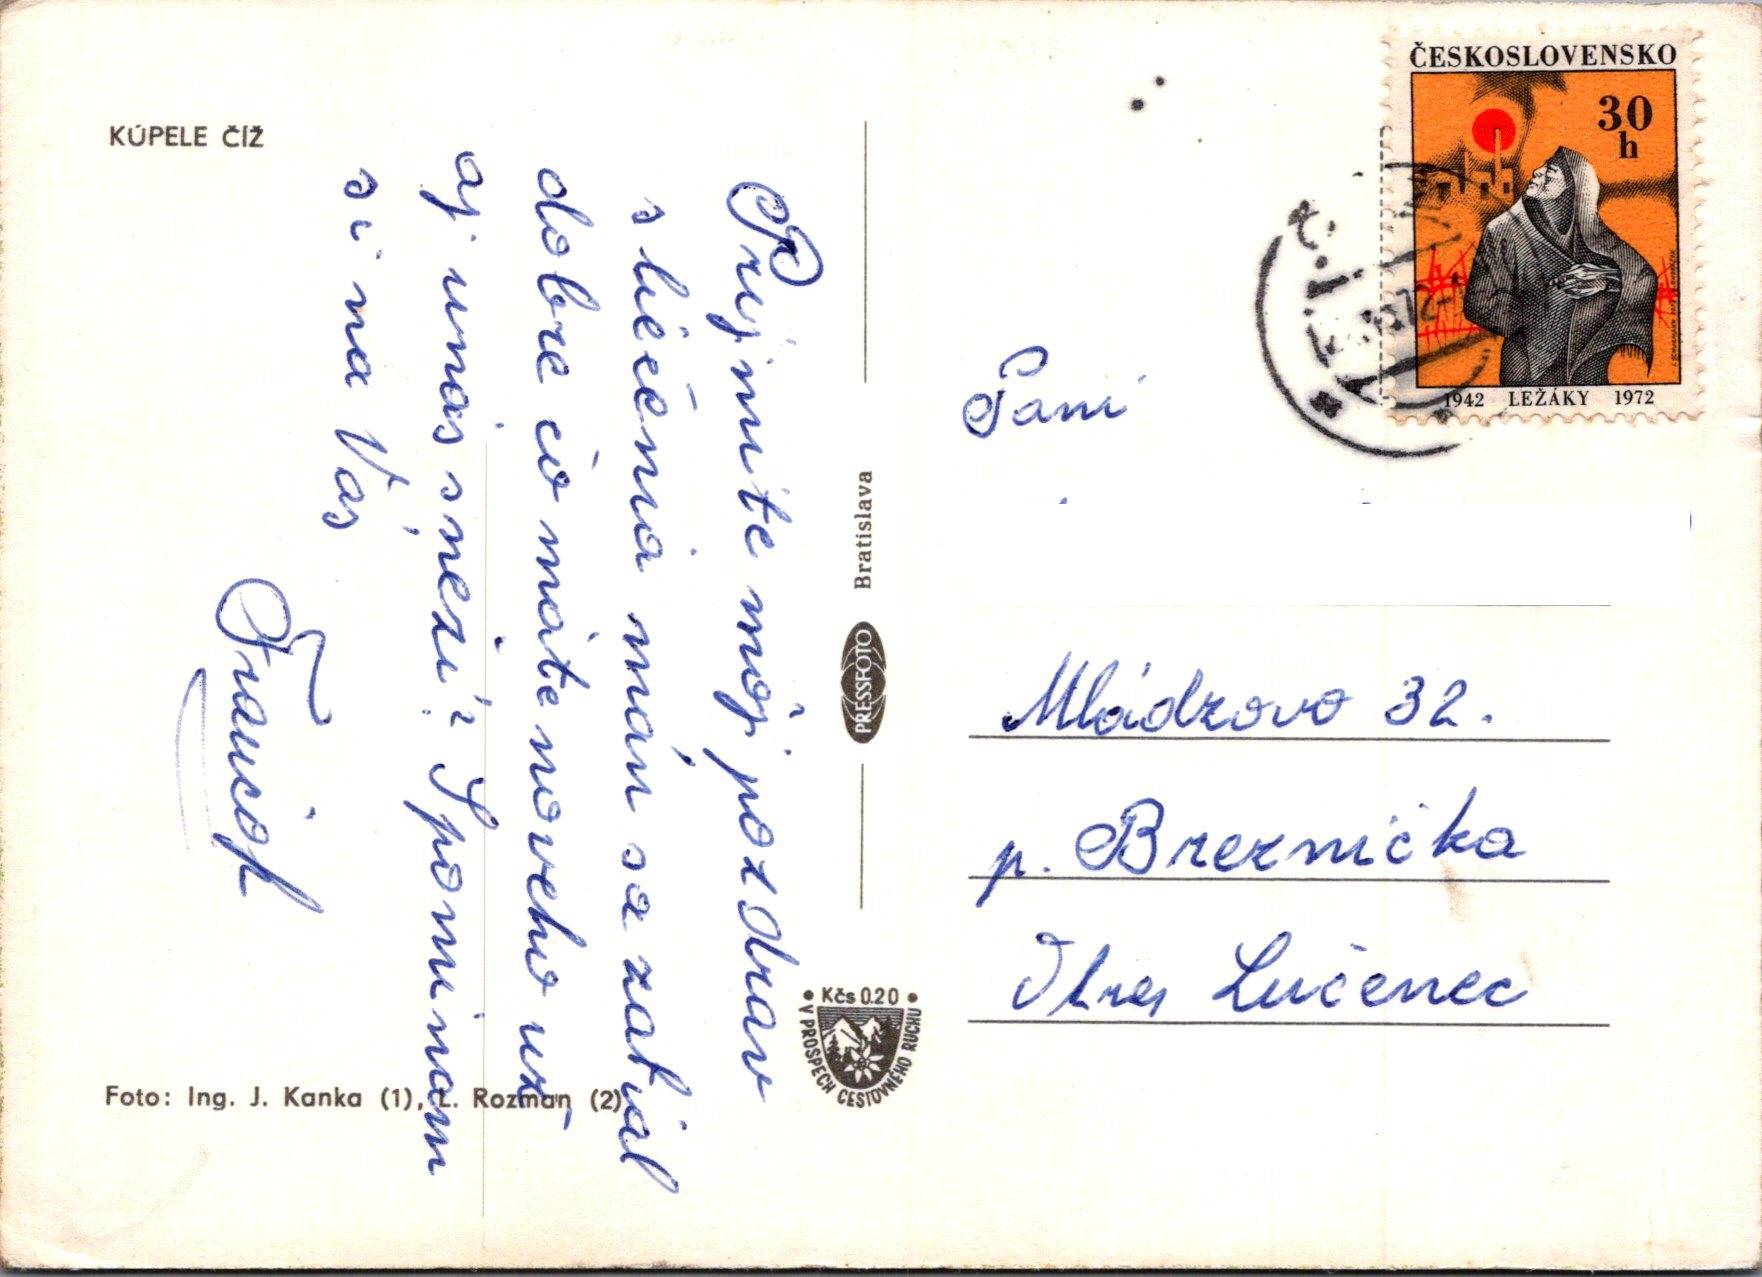 KÚPELE ČÍŽ
Prijmite môj pozdrav
s liečenia mám sa zatial
dobre čo máte noveho už
aj unás snezí? Spominam
si na Vás
Foto: Ing. J. Kanka (1), L. Rozman (2)
PRESSFOTO Bratislava
• Kčs 0.20 •
V PROSPECH CESTOVNÉHO RUCHU
ČESKOSLOVENSKO
30
h
1942 LEŽÁKY 1972
Pani
Mládzovo 32.
p. Breznička
Okres Lučenec